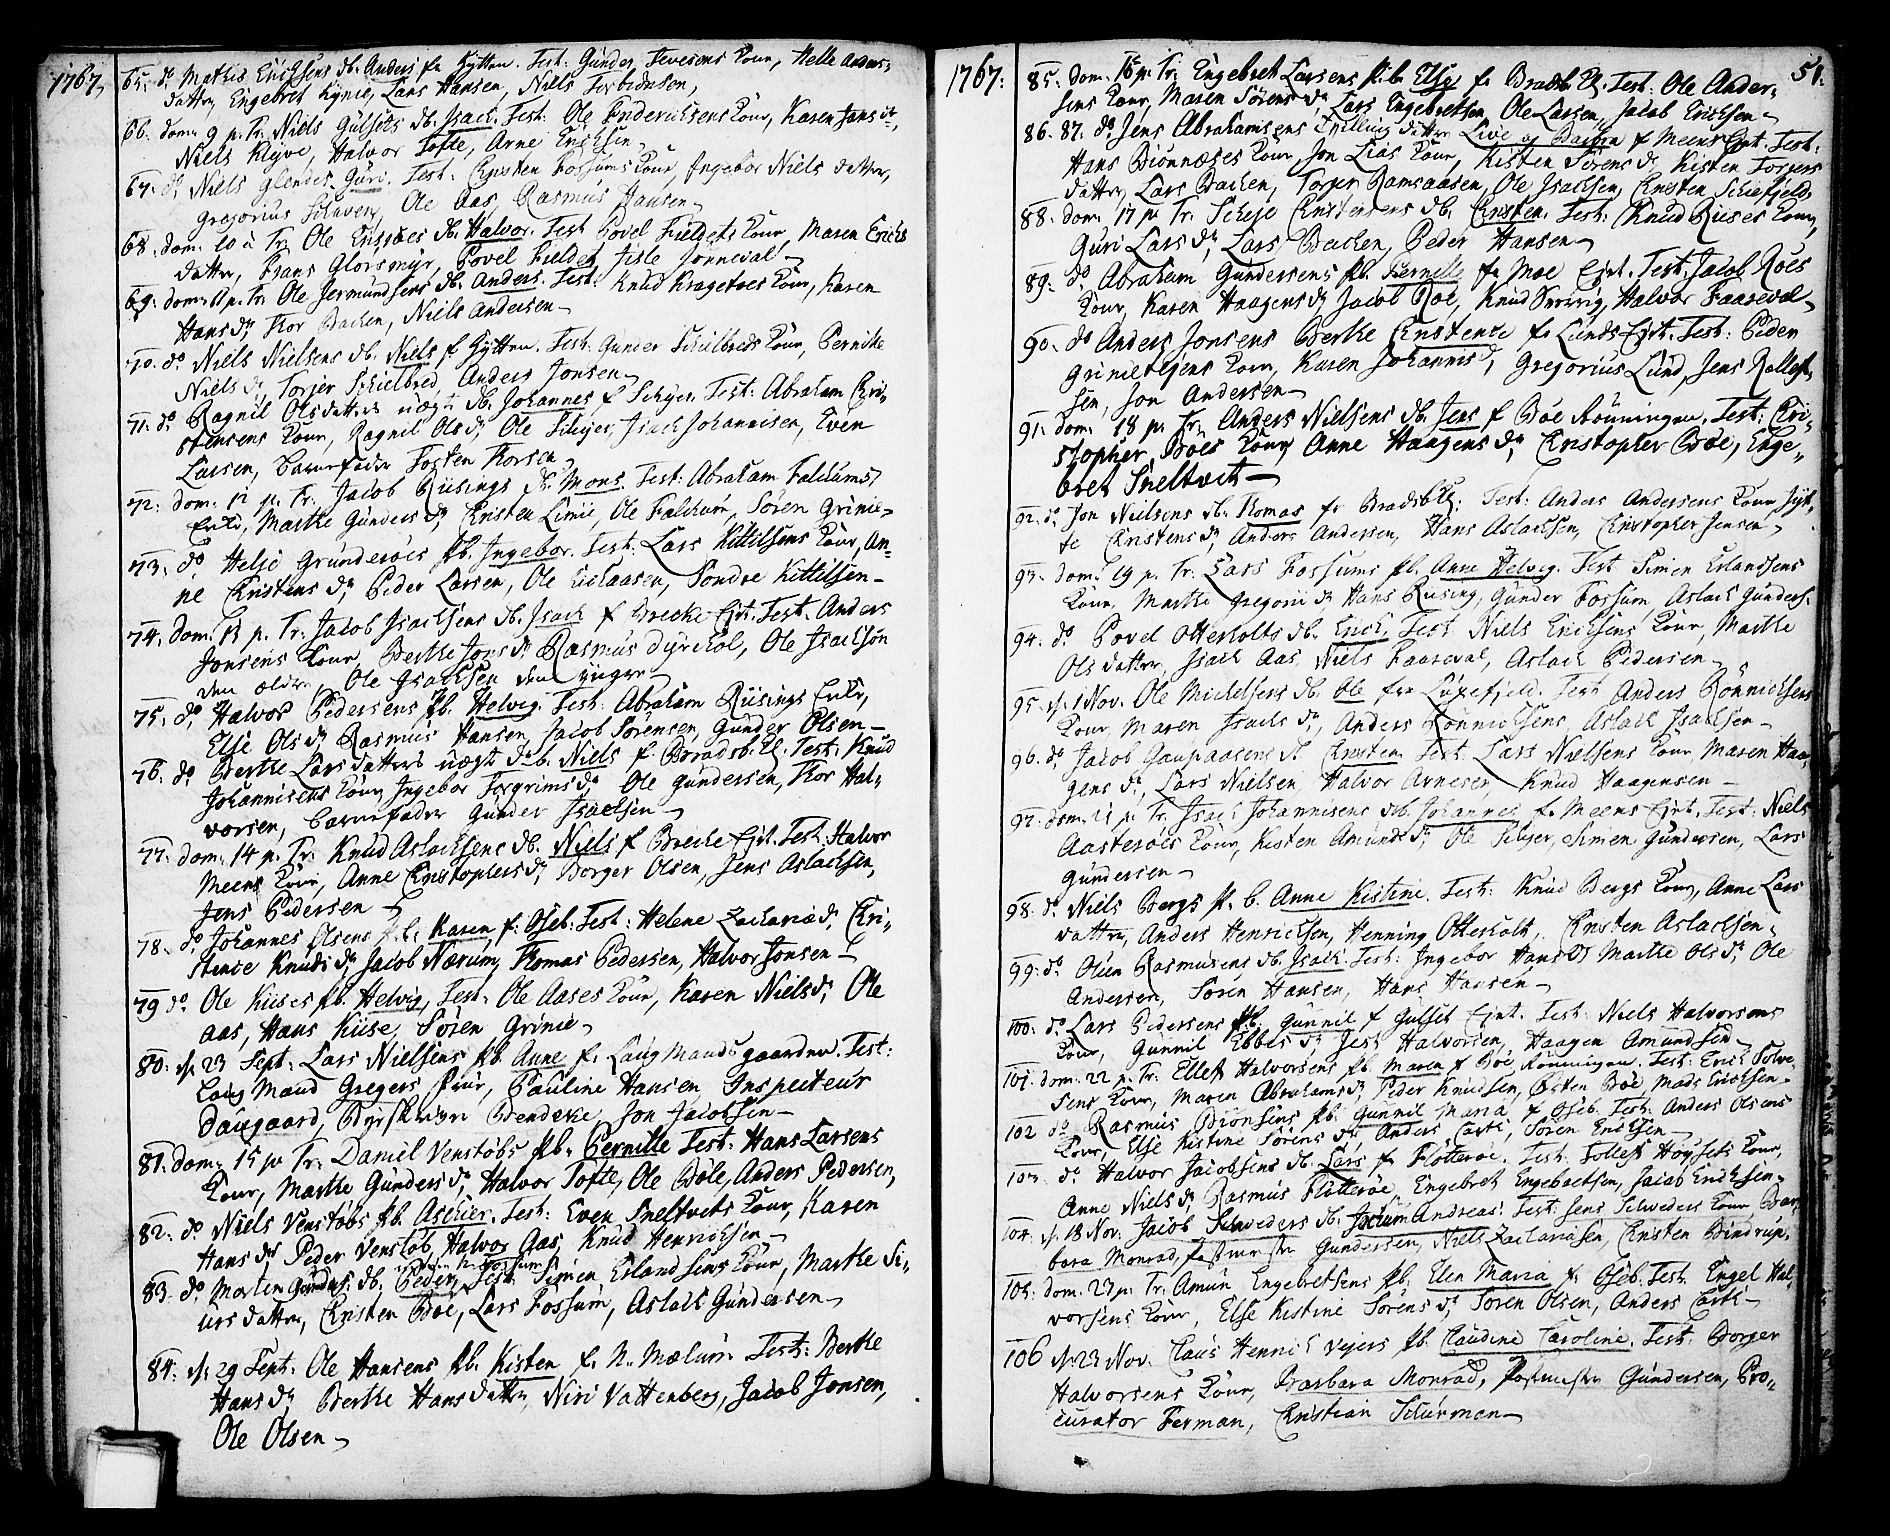 1767,
65. do Mathis Erichsens db. Anders fr Hytten. Test: Gunder Jevesens Kone, Helle Anders-
dattr, Engebret Kynie, Lars Hansen, Niels Torbiönsen,
66. dom. 9 p. Tr. Niels Gulsets db. Isach. Test: Ole Enderichsens Kone, Karen Jans dr,
Niels Klyve, Halvor Tofte, Arne Erichsen
67. do Niels Glendes Guri. Test: Christen Fossums Kone, Ingebor Niels dattr,
Gregorius Schaven, Ole Aas, Rasmus Hansen
68. dom. 10 a Tr. Ole Enssöes db. Halvor. Test Povel Fieldets Kone, Maren Erichs
dattr, Frans Glorsmyr, Povel Fieldet, Jisle Jonneval
69. dom. 11 p. Tr. Ole Jermundsens db. Anders. Test: Knud Kragetoes Kone, Karen
Hans dr, Thor Bachen, Niels Andersen
70. do Niels Nielsens db. Niels f Hytten. Test: Gunder Schilbreds Kone, Pernille
Niels dr, Torjer Schilbred, Anders Jonsen
71. do Ragnil Olsdatters uægt db. Johannes f Schyer. Test: Abraham Chri-
stensens Kone, Ragnil Ols dr, Ole Schyer, Isach Johannisen, Even
Larsen, Barnefader Tosten Thorsen
72. dom. 12 p. Tr. Jacob Riisings db. Mons. Test: Abraham Falchums
Enke, Marthe Gunders dr, Christen Limie, Ole Falchum, Sören Grinie
73. do Helje Grunderöes pb. Ingebor. Test: Lars Kittilsens Kone, An-
ne Christens dr, Peder Larsen, Ole Eichaasen, Sondre Kittilsen
74. Dom. 13 p. Tr. Jacob Isachsens db. Isach f Brecke Ejet. Test. Anders
Jonsens Kone, Berthe Jons dr, Rasmus Dyrekol, Ole Isachsön
den ældre, Ole Isachsen den yngre
75. do Halvor Pedersens pb. Helvig. Test: Abraham Riisings Enke,
Else Ols dr, Rasmus Hansen, Jacob Sörensen, Gunder Olsen
76. do Berthe Lars datters uægt d. b. Niels f Bradsb. Cl. Test: Knud
Johannisens Kone, Ingebor Torgrims dr, Ole Gundersen, Thor Hal-
vorsen, Barnefader Gunder Isachsen
77. dom. 14 p. Tr. Knud Aslachsens db. Niels f Brecke Ejet. Test: Halvor
Meens Kone, Anne Christophers dr, Borger Olsen, Jens Aslachsen,
Jens Pedersen
78. do Johannes Olsens p.b. Karen f: Oseb. Test: Helene Zachariæ dr, Chri-
stence Knuds dr, Jacob Nærum, Thomas Pedersen, Halvor Jonsen
79 do Ole Kiises pb. Helvig, Test: Ole Aases Kone, Karen Niels dr, Ole
Aas, Hans Kiise, Sören Grinie
80. d. 23 Sept: Lars Nielsens pb. Anne f. Laugmands gaarden. Test:
Laug Mand Gregers Frue, Pauline Hansen, Inspecteur
Daugaard, Byeskriver Bendeke, Jon Jacobsen
81. dom. 15 p Tr. Daniel Venstöbs pb. Pernille Test: Hans Larsens
Kone, Marthe Gunders dr, Halvor Tofte, Ole Böle, Anders Pedersen,
82. do Niels Venstöbs pb. Aschier. Test: Even Sneltvets Kone, Karen
Hans dr, Peder Venstöb, Halvor Aas, Knud Henrichsen
83. do Morten Gunders. db. Peder, Test: Simen Erlandsens Kone, Marthe Si-
urs dattr, Christen Böe, Lars Fossum, Aslach Gundersen
84. d. 29 Sept: Ole Hansens pb. Kisten f. N. Mælum Test: Berthe
Hans dr Berthe Hans dattr, Niri Vattenberg, Jacob Jonsen,
Ole Olsen
1767: 51.
85. dom. 16 p. Tr. Engebret Larsens p.b. Else f Bradsb. Cl. Test: Ole Ander-
sens Kone, Maren Sörens dr Lars Engebretsen Ole Larsen, Jacob Erichsen
86. 87. do Jens Abrahamsens Tvilling dattre Live og Barbra f Meens Ejet. Test:
Hans Biönneses Kone, Jon Lias Kone, Kisten Sörens dr, Kisten Torgers
dattr, Lars Bachen, Torger Ramsaasen, Ole Isachsen, Christen Schiefjeld,
88. dom. 17 p. Tr. Schje Christensens db. Christen. Test: Knud Riises Kone,
Guri Lars dr, Lars Bachen, Peder Hansen
89. do Abraham Gundersens pb. Pernille fr Moe Ejet. Test: Jacob Roes
Kone, Karen Haagens dr Jacob Roe, Knud Sviing, Halvor Faarevol
90. do Anders Jonsens Berthe Christence fr Lunds Ejet. Test: Peder
Grinietejens Kone, Karen Johannis dr, Gregorius Lund, Jens Rollef-
sen, Jon Andersen
91. dom. 18 p. Tr. Anders Nielsens db. Jens f Böe Rönningen. Test: Chri-
stopher Böes Kone, Anne Haagens dr, Christopher Böe, Enge-
bret Sneltvet
92. do Jon Nielsens db. Thomas fr Bradsb Cl: Test: Anders Andersens Kone, Jyt-
te Christens dr, Anders Andersen, Hans Aslachsen, Christopher Jensen
93. dom. 19 p. Tr. Lars Fossums pb. Anne Helvig. Test Simen Erlandsens
Kone, Marthe Gregorii dr Hans Riising, Gunder Fossum, Aslach Gunders:
94. do Povel Otterholts db. Erich. Test Niels Erichsens Kone, Marthe
Ols dattr, Isach Aas, Niels Faareval, Aslach Pedersen
95. d. 1 Nov. Ole Michelsens db. Ole fra Luxefjeld. Test Anders Rönnichsens
Kone, Maren Isachs dr, Anders Rönnichsens, Aslach Isachsen
96. do Jacob Gaupaasens d. Christen Test: Lars Nielsens Kone Maren Haa-
gens dr, Lars Nielsen, Halvor Arnesen, Knud Haagensen
97. dom. 21 p. Tr. Isach Johannisens db. Johannes f. Meens Ejet. Test: Niels
Aasteröes Kone, Kisten Amunds dr, Ole Schyer, Simen Gundersen, Lars
Gundersen
98. do Niels Bergs p. b. Anne Kistine. Test: Knud Bergs Kone, Anne Lars
dattr, Anders Henrichsen, Henning Otterholt, Christen Aslachsen
99. do Oluen Rasmusens db. Isach. Test: Ingebor Hans dr Marthe Ols dr, Ole
Andersen, Sören Hansen, Hans Hansen
100. do Lars Pedersens pb. Gunnil f Gulset Ejet. Test: Niels Halvorsens
Kone, Gunnil Ebbes dr Jens Halvorsen, Haagen Amundsen
101. dom. 22 p. Tr. Ellef Halvorsens pb. Maren f Böe Rönningen. Test: Erich Tolve-
sens Kone, Maren Abrahams dr, Peder Knudsen, Östen Böe, Mads Erichsen
102 do Rasmus Biönsens pb. Gunnil Maria f Oseb. Test: Anders Olsens
Kone, Else Kistine Sörens dr, Anders Carls, Sören Erichsen
103. do Halvor Jacobsens db. Lars fr Flotteröe. Test. Tollef Höysets Kone,
Anne Niels dr, Rasmus Flotteröe, Engebret Engebretsen, Jacob Erichsen
104. d. 18 Nov. Jacob Schweders db. Jochum Andreas. Test: Jens Schweders Kone, Bar-
bara Monrad, Postmester Gundersen, Niels Zachariasen, Christen Bindrup,
105. dom. 23 p. Tr. Amun Engebretsens pb. Elen Maria f. Oseb. Test. Engel Hal-
vorsens Kone, Else Kistine Sörens dr, Sören Olsen, Anders Carls
106 d. 23 Nov. Claus Henrich Vejers pb. Claudine Caroline. Test: Borger
Halvorsens Kone, Barbara Monrad, Postmester Gundersen, Pro-
curator Ferman, Christian Schürman